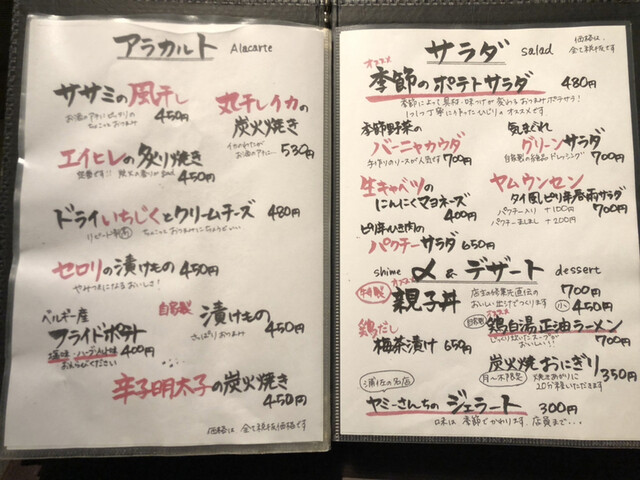 アラカルト Alacarte
ササミの風干し
450円
丸干しイカの
炭火焼き
530円
エイヒレの炙り焼き
450円
ドライいちじくとクリームチーズ 480円
セロリの漬けもの 450円
やみつきになるおいしさ!
ベルギー産
フライドポテト
400円
お選びください
自家製 漬けもの
450円
さっぱりおつまみ
辛子明太子の炭火焼き
450円
価格は 全て税抜価格です
サラダ salad
価格は、
全て税抜です
オススメ
季節のポテトサラダ 480円
季節によって具材・味つけが変わるおつまみポテサラ!
季節野菜の
バーニャカウダ
手作りのソースが人気です 700円
気まぐれ
グリーンサラダ
700円
生キャベツの
にんにくマヨネーズ
400円
ヤムウンセン
タイ風ピリ辛春雨サラダ
パクチー入り +100円
パクチーましまし +200円
700円
ピリ辛ひき肉の
パクチーサラダ 650円
shime 〆&デザート dessert
特製
オススメ
親子丼
700円
小 450円
鶏だし
梅茶漬け 650円
オススメ
自家製
鶏白湯正油ラーメン
700円
炭火焼おにぎり
350円
月〜木限定
焼きあがりに
20分程いただきます
浦佐の名店
ヤミーさんちのジェラート 300円
味は 季節でかわります。店員まで・・・